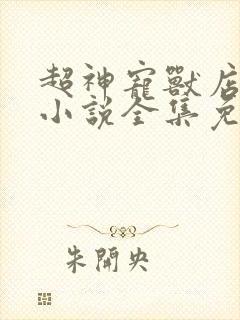 超神寵獸店
小說全集免
朱開央